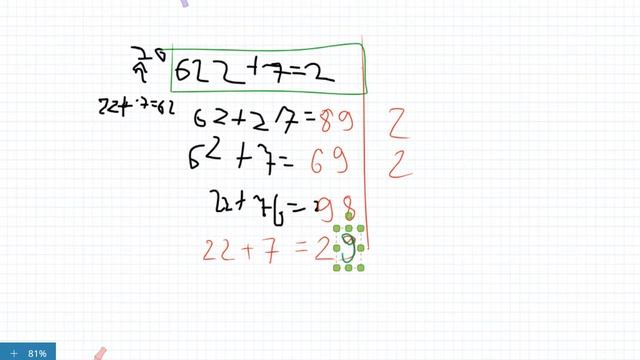 622+7=2
22+7=62
62+27=89 2
62+7=69 2
22+76=98
22+7=29
81%